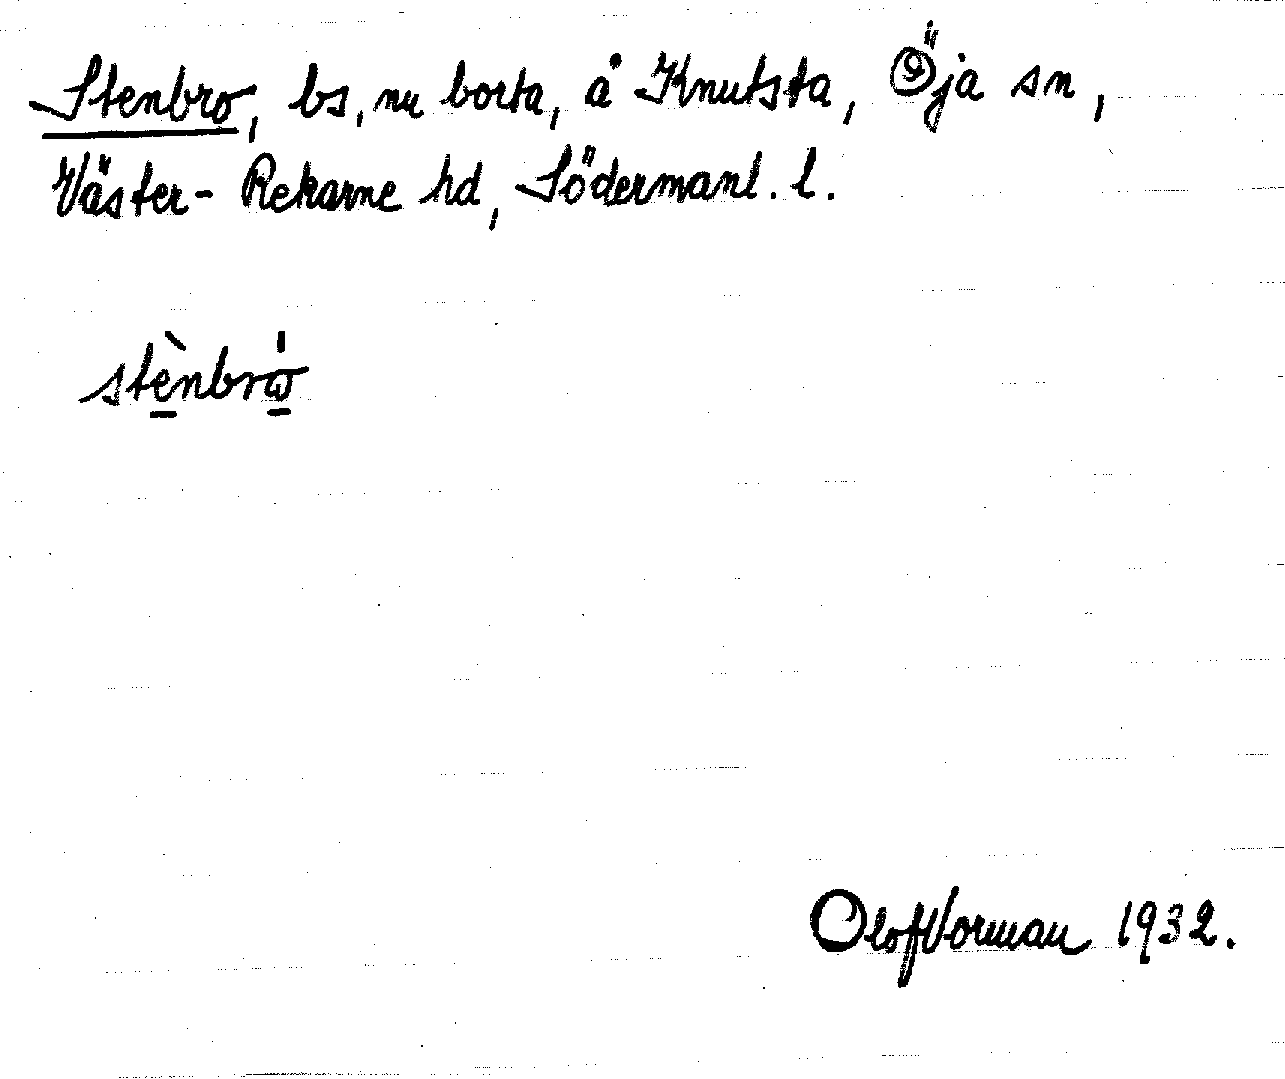 Stenbro, bs, nu borta, å Knutsta, Öja sn,
Väster-Rekarne hd, Södermanl. l.
stènbrω̍
Olof Vorman 1932.